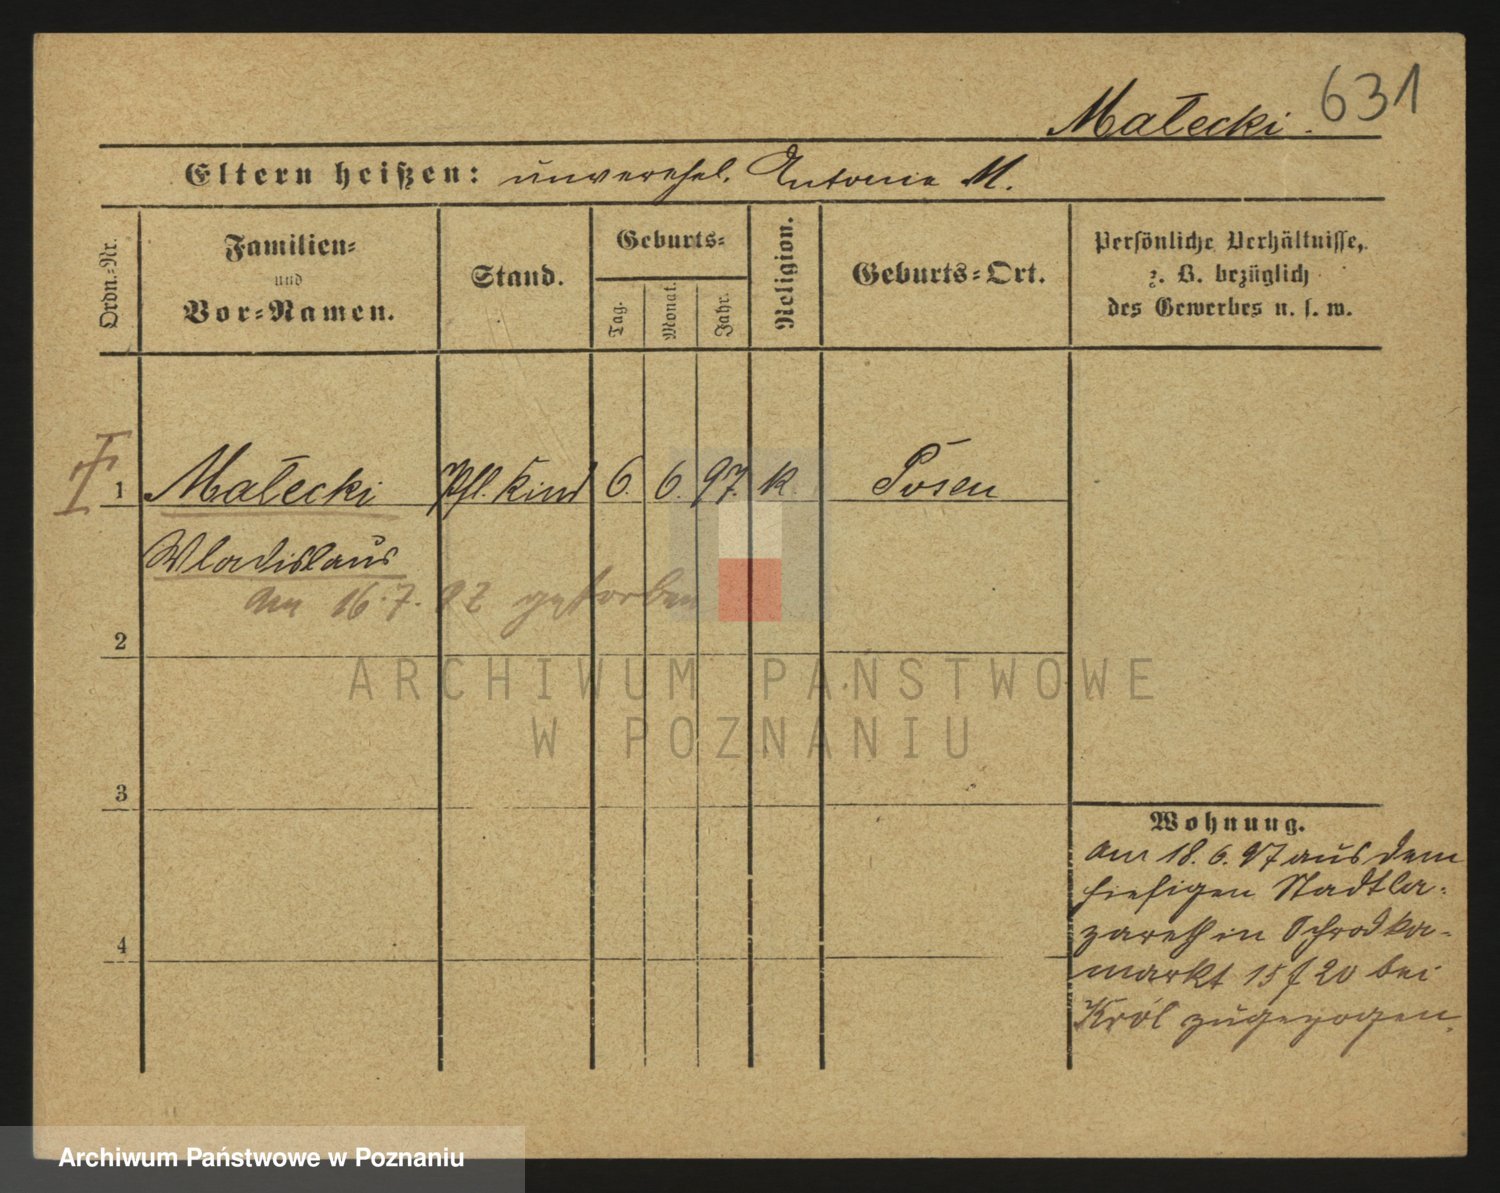 631
Małecki.
Eltern heißen: unverehel. Antonie M.
Ordn.-Nr.
Familien-
und
Vor-Namen.
Stand.
Geburts-
Tag.
Monat.
Jahr.
Religion.
Geburts-Ort.
Persönliche Verhältnisse,
z. B. bezüglich
des Gewerbes u. s. w.
1 Małecki Pfl. Kind 6. 6. 97. k. Posen
Wladislaus
am 16.7.97 gestorben
2
3
4
Wohnung.
Am 18.6.97 aus dem
hiesigen Stadtla-
zareth in Schrodka-
markt 15/20 bei
Król zugezogen.
ARCHIWUM PAŃSTWOWE
W POZNANIU
Archiwum Państwowe w Poznaniu